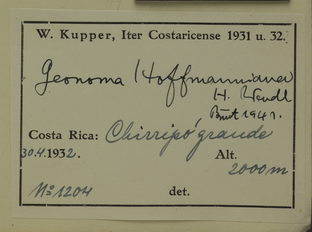 W. Kupper, Iter Costaricense 1931 u. 32.
Geonoma Hoffmanniana
H. Wendl
Burret 1941.
Costa Rica: Chirripó grande
30.4.1932. Alt.
2000m
No 1204 det.